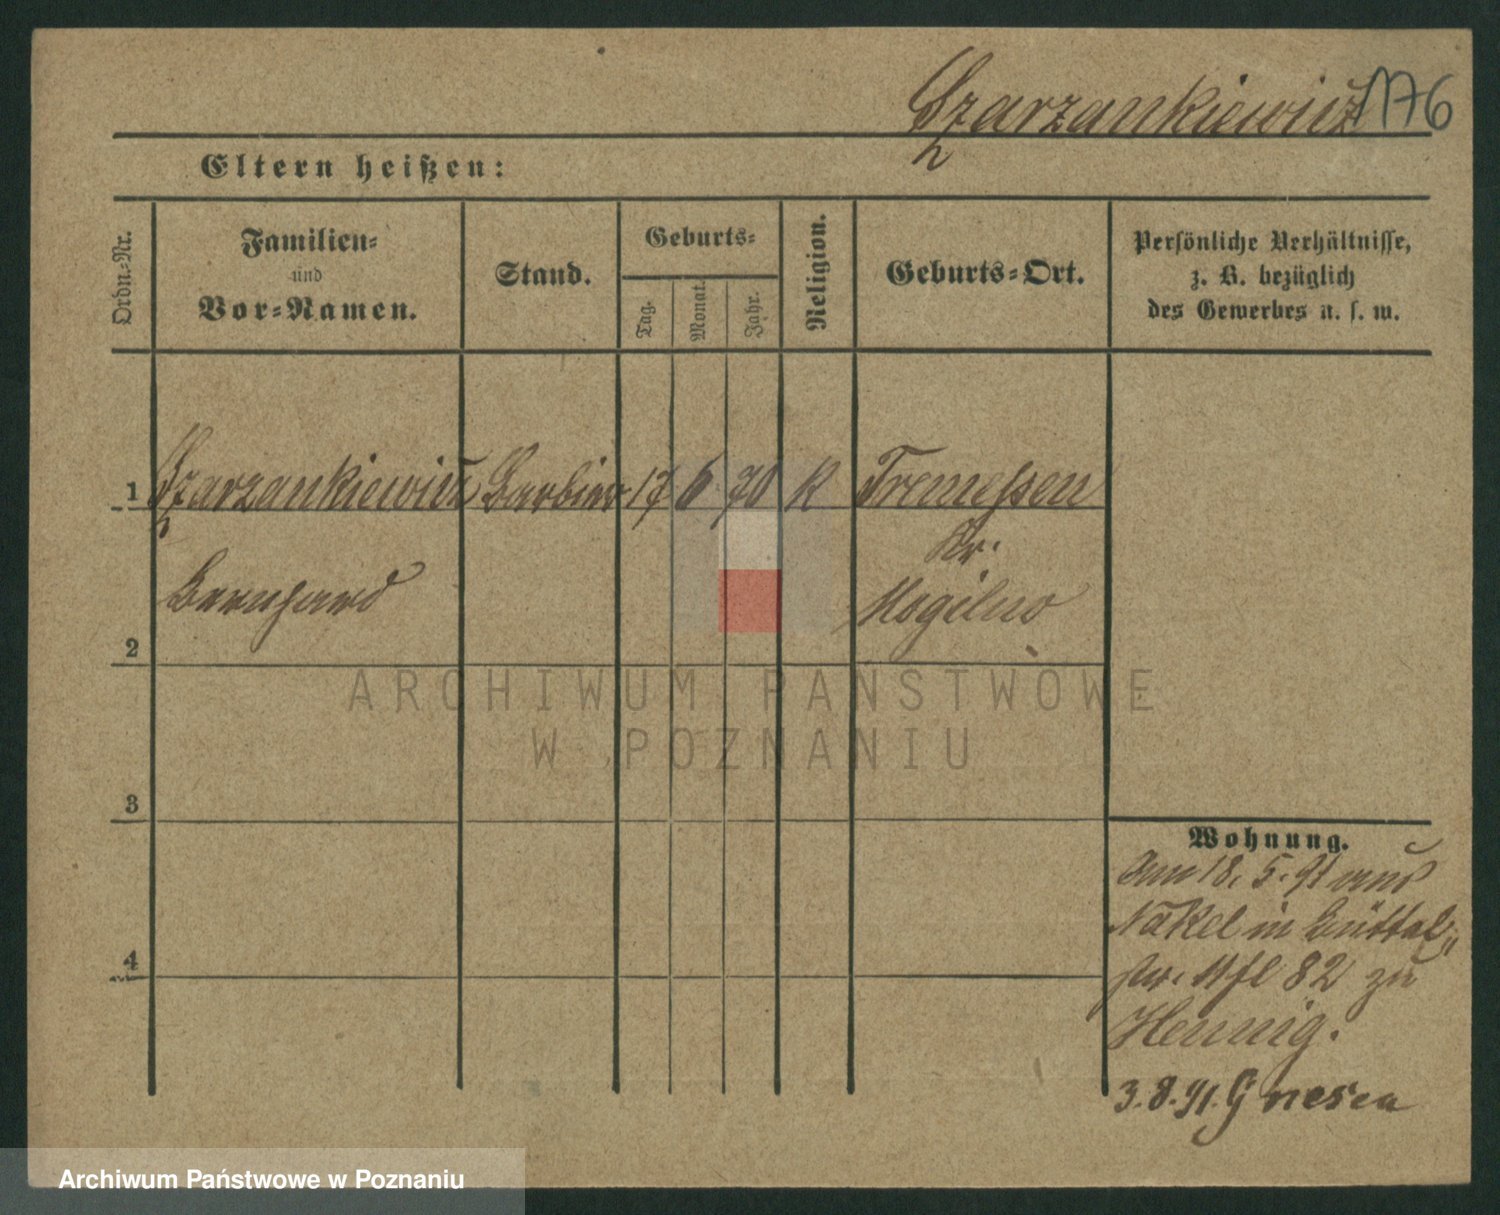 Szarzankiewicz 176
Eltern heißen:
Ordn.-Nr.
Familien-
und
Vor-Namen.
Stand.
Geburts-
Tag.
Monat.
Jahr.
Religion.
Geburts-Ort.
Persönliche Verhältnisse,
z. B. bezüglich
des Gewerbes u. s. w.
1 Szarzankiewicz Barbier 17 6 70 K Tremessen
Kr.
Bernhard Mogilno
2
3
4
Wohnung.
Am 18. 5. 91 aus
Nakel in Büttel-
str. 82 zu
Hennig.
3. 8. 91. Gnesen
ARCHIWUM PAŃSTWOWE
W POZNANIU
Archiwum Państwowe w Poznaniu